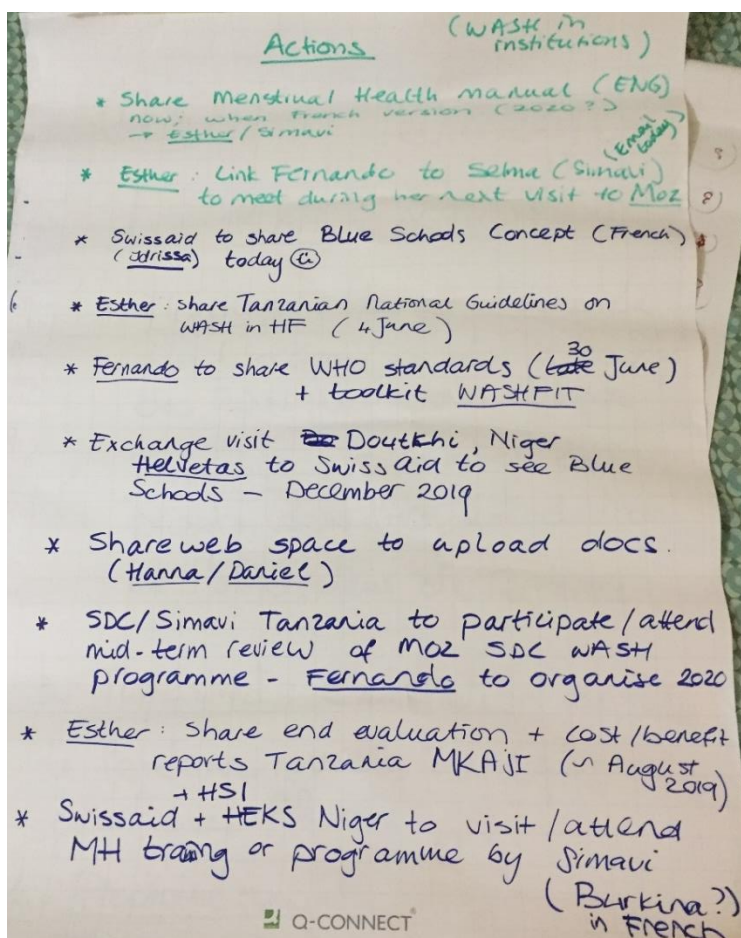 Actions (WASH in
institutions)
* Share Menstrual Health manual (ENG)
now; when French version (2020?)
→ Esther/Simavi
(Email
today)
* Esther: Link Fernando to Selma (Simavi)
to meet during her next visit to Moz
* Swissaid to share Blue Schools Concept (French)
(Idrissa) today
* Esther: share Tanzanian National Guidelines on
WASH in HF (4 June)
30
* Fernando to share WHO standards (late June)
+ toolkit WASHFIT
* Exchange visit Doutkhi, Niger
Helvetas to Swiss Aid to see Blue
Schools - December 2019
* Share web space to upload docs.
(Hanna/Daniel)
* SDC/Simavi Tanzania to participate/attend
mid-term review of MOZ SDC WASH
programme - Fernando to organise 2020
* Esther: Share end evaluation + cost/benefit
reports Tanzania MKAJI (~ August
2019)
+ HSI
* Swissaid + HEKS Niger to visit/attend
MH traing or programme by Simavi
(Burkina?)
in French
Q-CONNECT